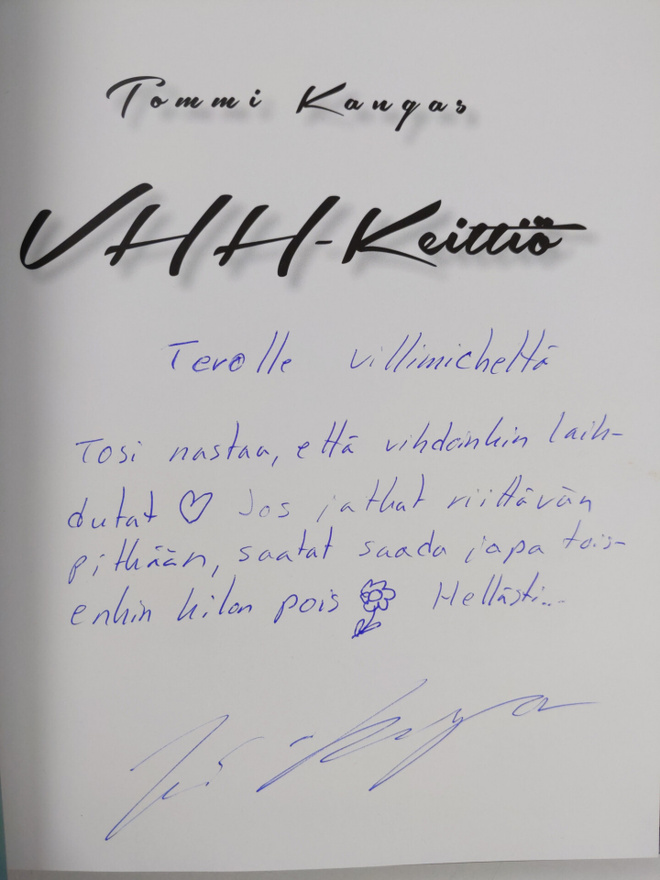 Tommi Kangas
VHH-Keittiö
Terolle villimicheltä
Tosi nastaa, että vihdoinkin laih-
dutat ♡ Jos jatkat riittävän
pitkään, saatat saada jopa tois-
enkin kilon pois Hellästi...